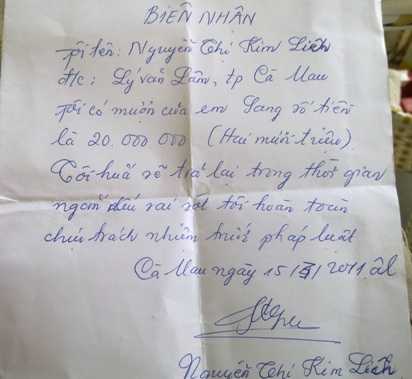 BIÊN NHÂN
Tôi tên: Nguyễn Thị Kim Liên
đ/c: Lý Văn Lâm, tp Cà Mau
tôi có mườn của em Sang số tiền
là 20.000.000 (Hai mười triệu).
Tôi hứa sẽ trả lại trong thời gian
ngắn nếu sai sót tôi hoàn toàn
chịu trách nhiệm trước pháp luật
Cà Mau ngày 15/3/2011 âl
Nguyễn Thị Kim Liên